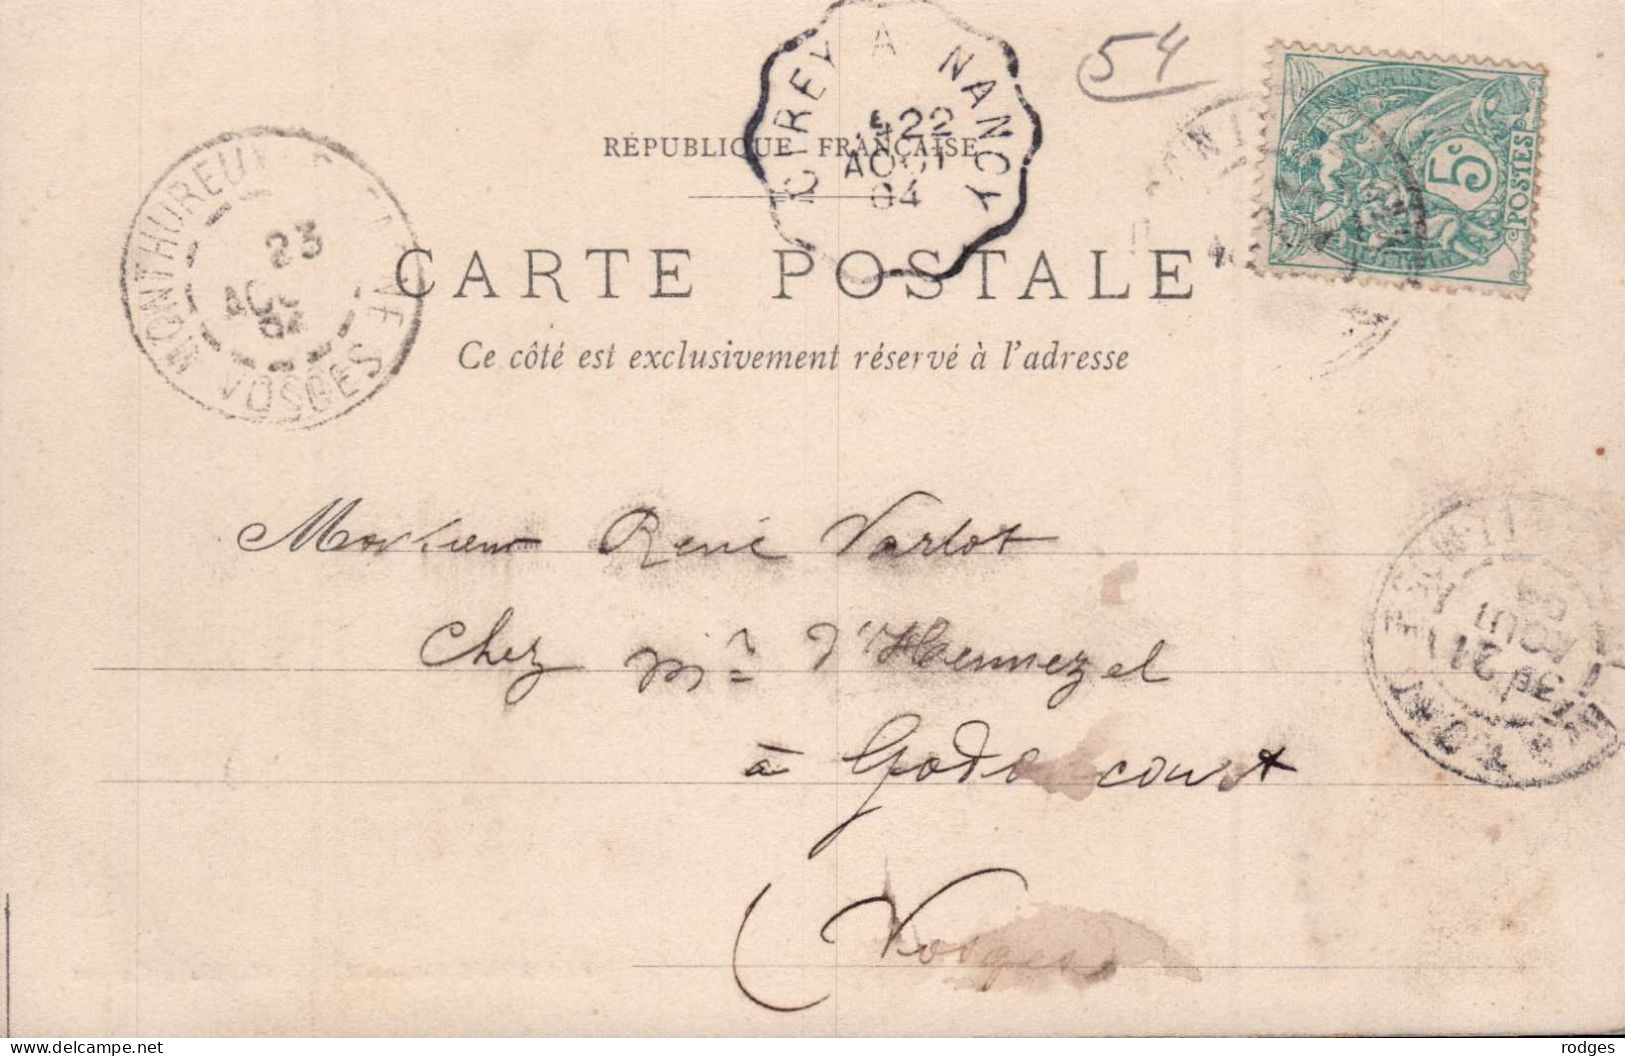 54
CIREY A NANCY
22
AOUT
04
RÉPUBLIQUE FRANÇAISE
5c
POSTES
MONTHUREUX
23
VOSGES
CARTE POSTALE
Ce côté est exclusivement réservé à l'adresse
Monsieur René Varlot
Chez Mr d'Hennezel
à Godoncourt
(Vosges
21
AOUT
04
delcampe.net
rodges